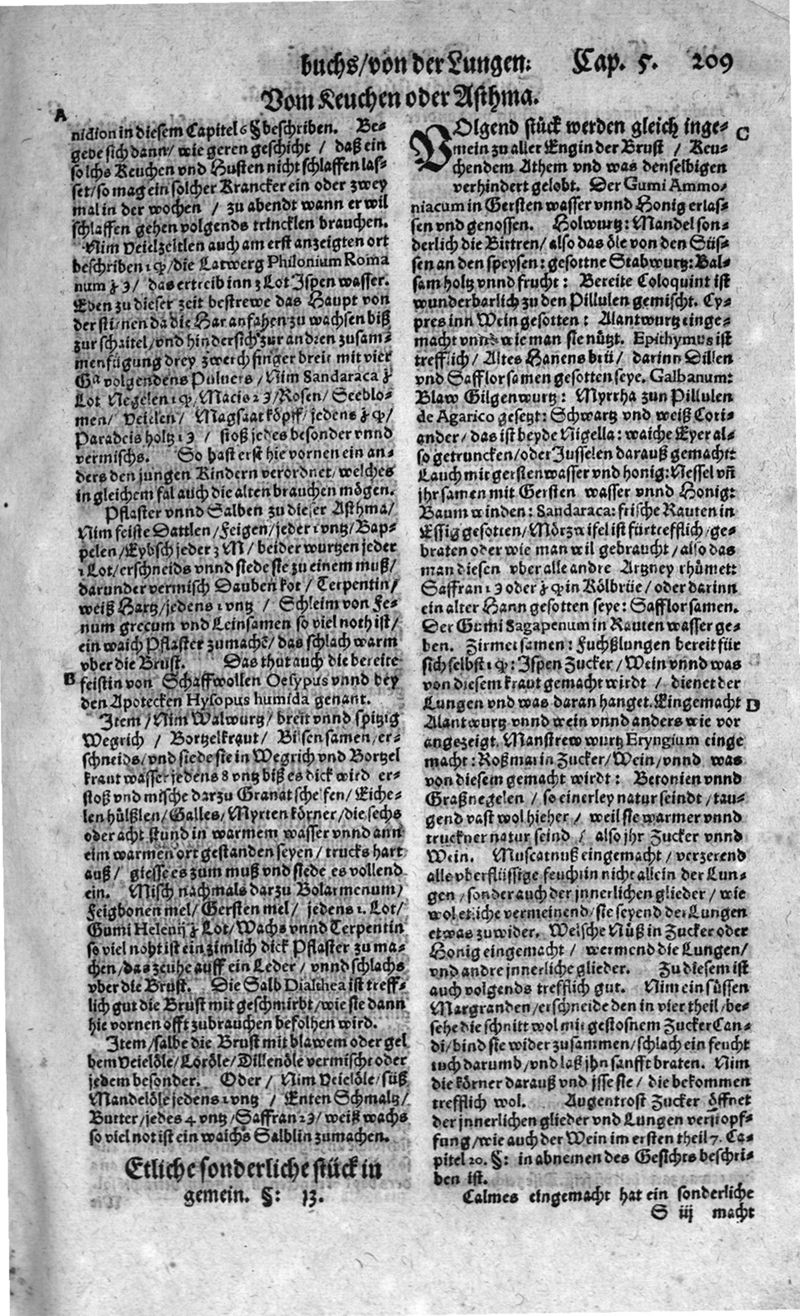 buchs/von der Lungen. Cap. 5. 209
Vom Keuchen oder Asthma.
A
nidion in diesem Capitel 6 § beschriben. Be-
gebe sich dann/ wie geren geschicht / daß ein
solchs Keuchen vnd Husten nicht schlaffen las-
set/ so mag ein solcher Krancker ein oder zwey
mal in der wochen / zu abendt wann er wil
schlaffen gehen volgends trincklen brauchen.
Nim Veielzeltlen auch am erst anzeigten ort
beschriben /die Latwerg Philonium Roma
num / das ertreib inn 3 Lot Ispen wasser.
Eben zu dieser zeit bestrewe das Haupt von
der stirnen da die Har anfahen zu wachsen biß
zur schaitel/ vnd hindersich zur andren zusam-
menfügung drey zwerchfinger breit mit vier
volgendens Puluers / Nim Sandaraca
Lot Negelen / Macis / Rosen/ Seeblo-
men/ Veielen/ Magsaat köpff/ jedens /
Paradeis holtz / stoß jedes besonder vnnd
vermischs. So hast erst hie vornen ein an-
ders den jungen Kindern verordnet/ welches
in gleichem fal auch die alten brauchen mögen.
Pflaster vnnd Salben zu dieser Asthma/
Nim feiste Dattlen/ Feigen/ jeder 1 vntz/ Bap-
pelen/ Eybsch jeder 3 M/ beider wurtzen jeder
1 Lot/ erschneids vnnd siede sie zu einem muß/
darunder vermisch Dauben kot/ Terpentin/
weiß Hartz/ jedens 1 vntz / Schleim von Fe-
num grecum vnd Leinsamen so viel noth ist/
ein waich Pflaster zumachē/ das schlach warm
vber die Brust. Das thut auch die bereite
B
feistin von Schaffwollen Oesypus vnnd bey
den Apotecken Hysopus humida genant.
Item/ Nim Walwurtz/ breit vnnd spitzig
Wegrich / Bortzelkraut/ Bilsensamen/ er-
schneids/ vnd siede sie in Wegrich vnd Bortzel
kraut wasser jedens 8 vntz biß es dick wird er-
stoß vnd mische darzu Granatschelfen/ Eiche-
len hülßlen/ Galles/ Myrten körner/ die sechs
oder acht stund in warmem wasser vnnd ann
eim warmen ort gestanden seyen / trucks hart
auß/ giesse es zum muß vnd siede es vollend
ein. Misch nachmals darzu Bolarmenum/
Feigbonen mel/ Gersten mel / jedens 1. Lot/
Gumi Helenij Lot/ Wachs vnnd Terpentin
so viel noht ist ein zimlich dick Pflaster zu ma-
chen/ das zeuhe auff ein Leder / vnnd schlachs
vber die Brust. Die Salb Dialthea ist treff-
lich gut die Brust mit geschmirbt/ wie sie dann
hie vornen offt zubrauchen befolhen wird.
Item/ salbe die Brust mit blawem oder gel
bem Veielöle/ Loröle/ Dillenöle vermischt oder
jedem besonder. Oder / Nim Veielöle/ süß
Mandelöle jedens 1 vntz / Enten Schmaltz/
Butter/ jedes 4 vntz/ Saffran / weiß wachs
so viel not ist ein waichs Sälblin zumachen.
Etliche sonderliche stück in
gemein. §: 13.
C
VOlgend stück werden gleich inge-
mein zu aller Eng in der Brust / Keu-
chendem Athem vnd was denselbigen
verhindert gelobt. Der Gumi Ammo-
niacum in Gersten wasser vnnd Honig erlas-
sen vnd genossen. Holwurtz: Mandel son-
derlich die Bittren/ also das öle von den Süs-
sen an den speysen: gesottne Stabwurtz: Bal-
sam holtz vnnd frucht: Bereite Coloquint ist
wunderbarlich zu den Pillulen gemischt. Cy-
pres inn Wein gesotten: Alantwurtz einge-
macht vnnd wie man sie nützt. Epithymus ist
trefflich/ Altes Hanens brü/ darinn Dillen
vnd Safflorsamen gesotten seye. Galbanum:
Blaw Gilgenwurtz: Myrrha zun Pillulen
de Agarico gesetzt: Schwartz vnd weiß Cori-
ander/ das ist beyde Nigella: waiche Eyer al-
so getruncken/ oder Jusselen darauß gemacht:
Lauch mit gerstenwasser vnd honig: Nessel vñ
jhr samen mit Gersten wasser vnnd Honig:
Baum winden: Sandaraca: frische Rauten in
Essig gesotten/ Mörzwifel ist fürtrefflich/ ge-
braten oder wie man wil gebraucht/ also das
man diesen vber alle andre Artzney rhümet:
Saffran oder in Kölbrüe/ oder darinn
ein alter Hann gesotten seye: Safflor samen.
Der Gumi Sagapenum in Rauten wasser ge-
ben. Zirmet samen: Fuchßlungen bereit für
sich selbst : Ispen Zucker/ Wein vnnd was
von diesem kraut gemacht wirdt / dienet der
Lungen vnd was daran hanget. Eingemacht
D
Alantwurtz vnnd wein vnnd anders wie vor
angezeigt. Manstrew wurtz Eryngium einge
macht: Roßmarin Zucker/ Wein/ vnnd was
von diesem gemacht wirdt: Betonien vnnd
Graßnegelen / so einerley natur seindt/ tau-
gend vast wol hieher / weil sie warmer vnnd
truckner natur seind / also jhr Zucker vnnd
Wein. Muscatnuß eingemacht / verzerend
alle vberflüssige feuchtin nicht allein der Lun-
gen/ sonder auch der jnnerlichen glieder / wie
wol etliche vermeinend/ sie seyend der Lungen
etwas zuwider. Welsche Nüß in Zucker oder
Honig eingemacht / wermend die Lungen/
vnd andre jnnerliche glieder. Zu diesem ist
auch volgends trefflich gut. Nim ein süssen
Margranden/ erschneide den in vier theil/ be-
sehe die schnitt wol mit gestosnem Zucker Can-
di/ bind sie wider zusammen/ schlach ein feucht
tuch darumb/ vnd laß jhn sanfft braten. Nim
die körner darauß vnd jsse sie / die bekommen
trefflich wol. Augentrost Zucker öffnet
der jnnerlichen glieder vnd Lungen verstopf-
fung/ wie auch der Wein im ersten theil 7. Ca-
pitel 20. §: in abnemen des Gesichts beschri-
ben ist.
Calmes eingemacht hat ein sonderliche
S iij macht